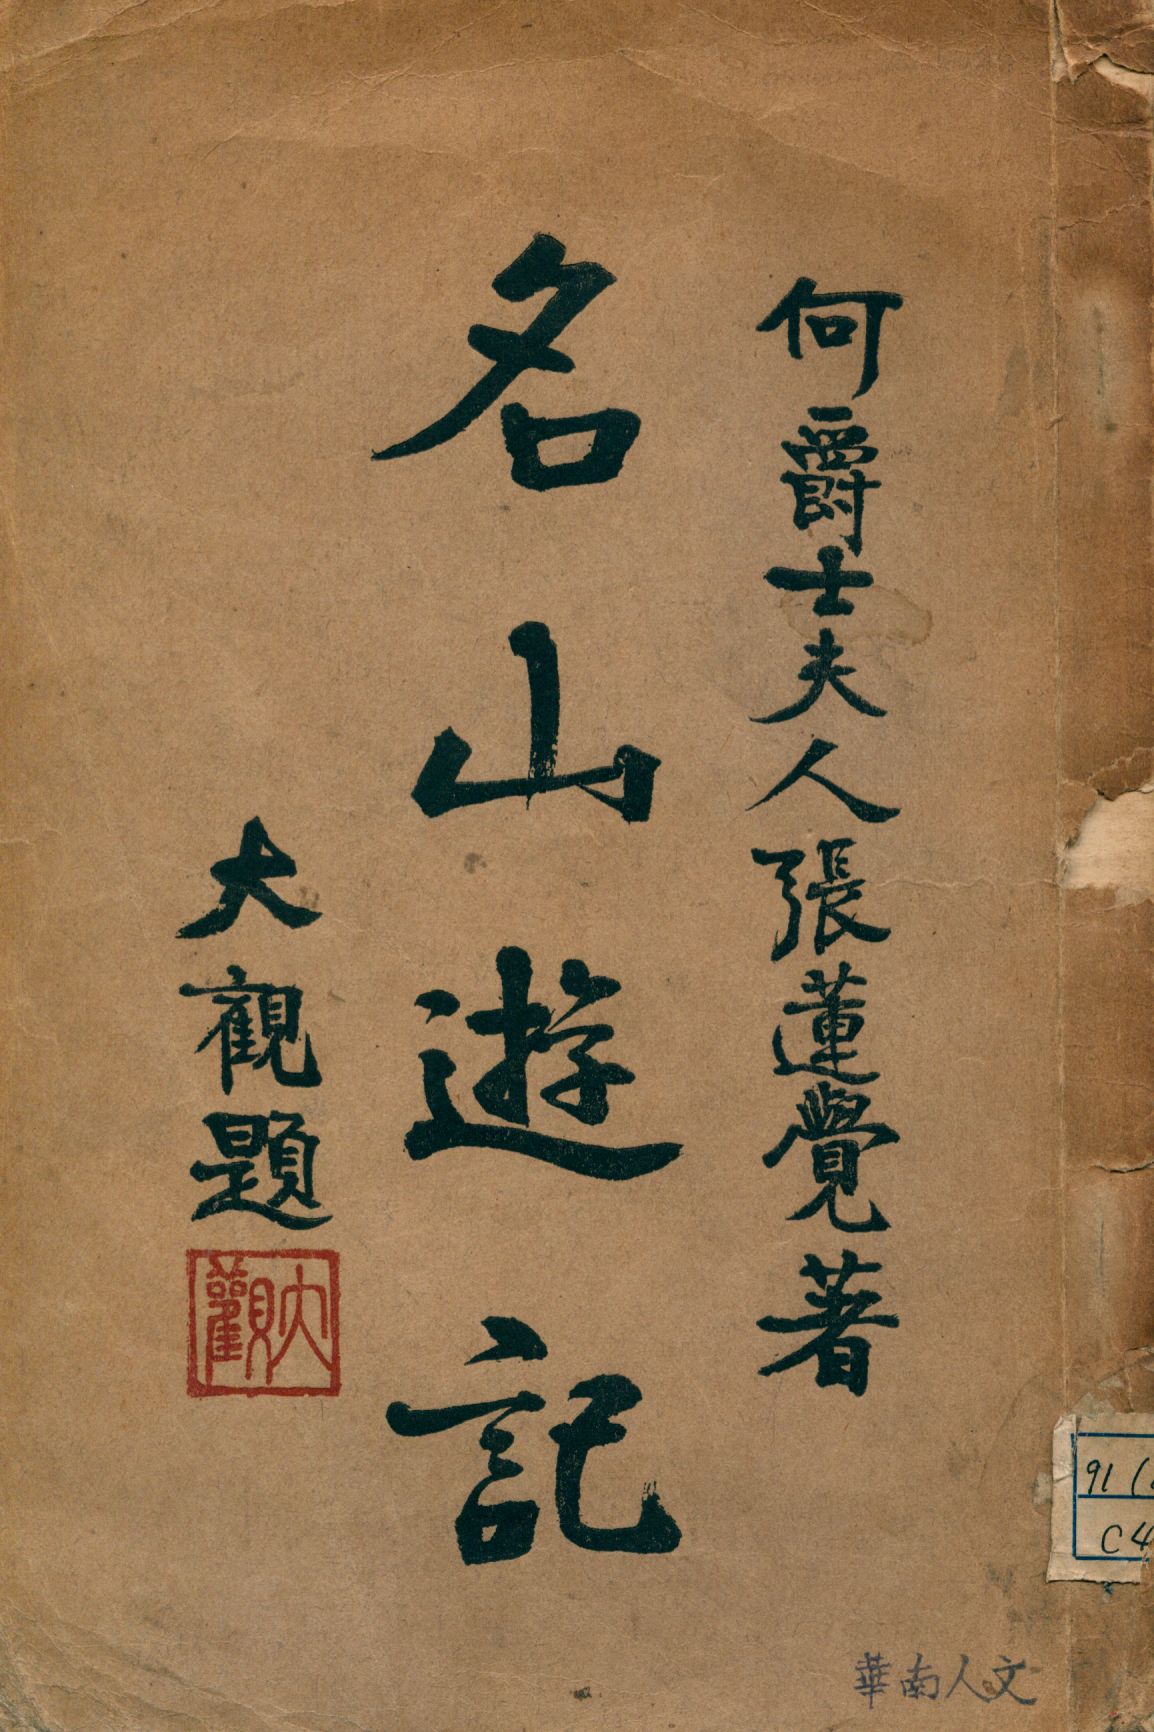 何爵士夫人張蓮覺著
名山遊記
大觀題
大觀
91 (
C4
華南人文